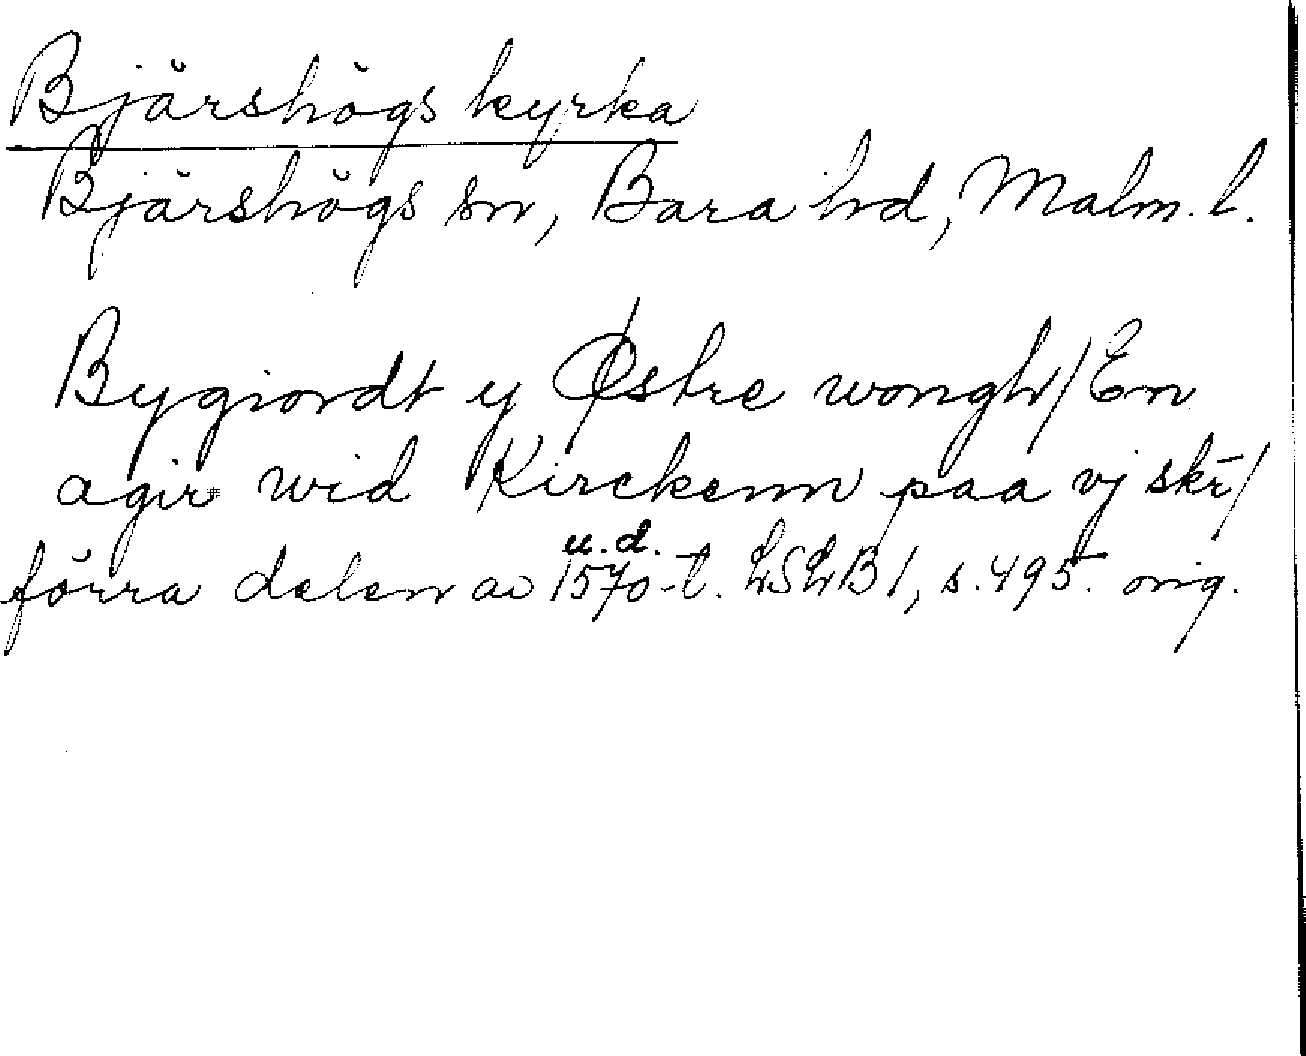 Bjärshögs kyrka
Bjärshögs sn, Bara hd, Malm. l.
Bygiordt y Østre wongh/ En
agir wid Kirckenn paa vj skr/
u. d.
förra delen av 1570-t. LSLB 1, s. 495. orig.